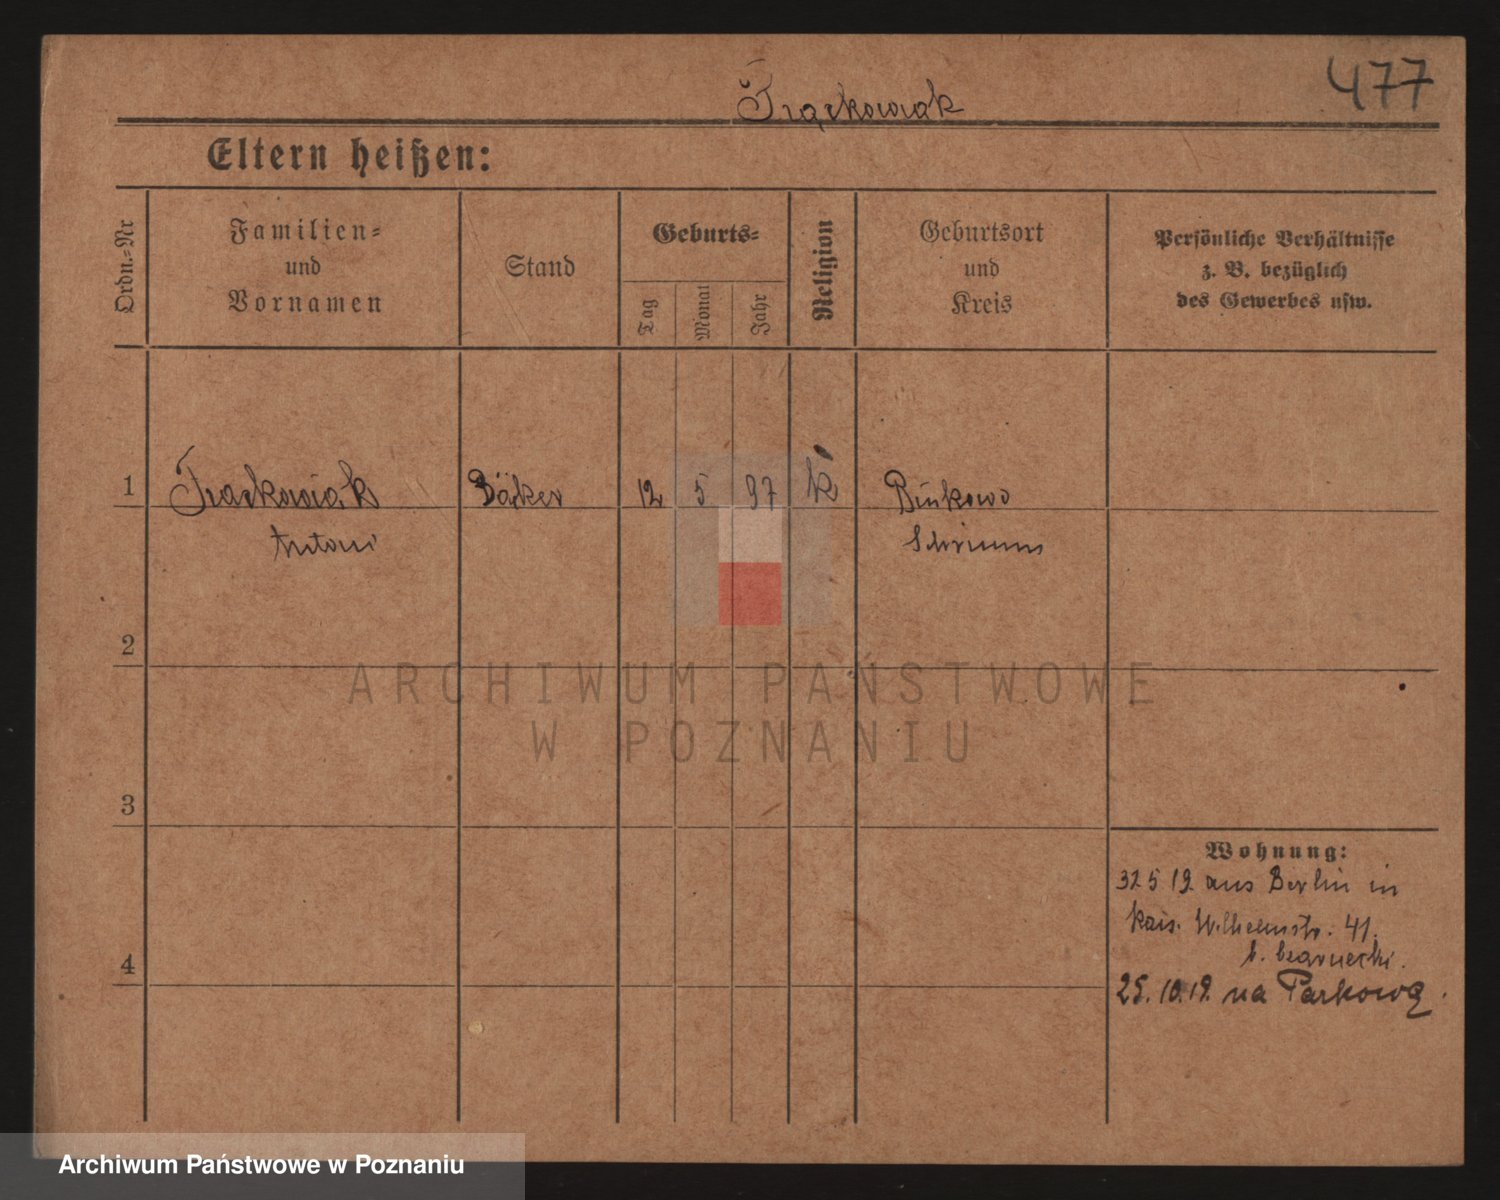 477
Trąckowiak
Eltern heißen:
Ordn.-Nr
Familien-
und
Vornamen
Stand
Geburts-
Tag
Monat
Jahr
Religion
Geburtsort
und
Kreis
Persönliche Verhältnisse
z. B. bezüglich
des Gewerbes usw.
1 Trackowiak Bäcker 12 5 97 k Binkowo
Antoni Schrimm
2
3
4
Wohnung:
5 19 aus Berlin in
Kais. Wilhelmstr. 41.
b. Czarnecki.
25. 10. 19. na Parkową.
ARCHIWUM PAŃSTWOWE
W POZNANIU
Archiwum Państwowe w Poznaniu